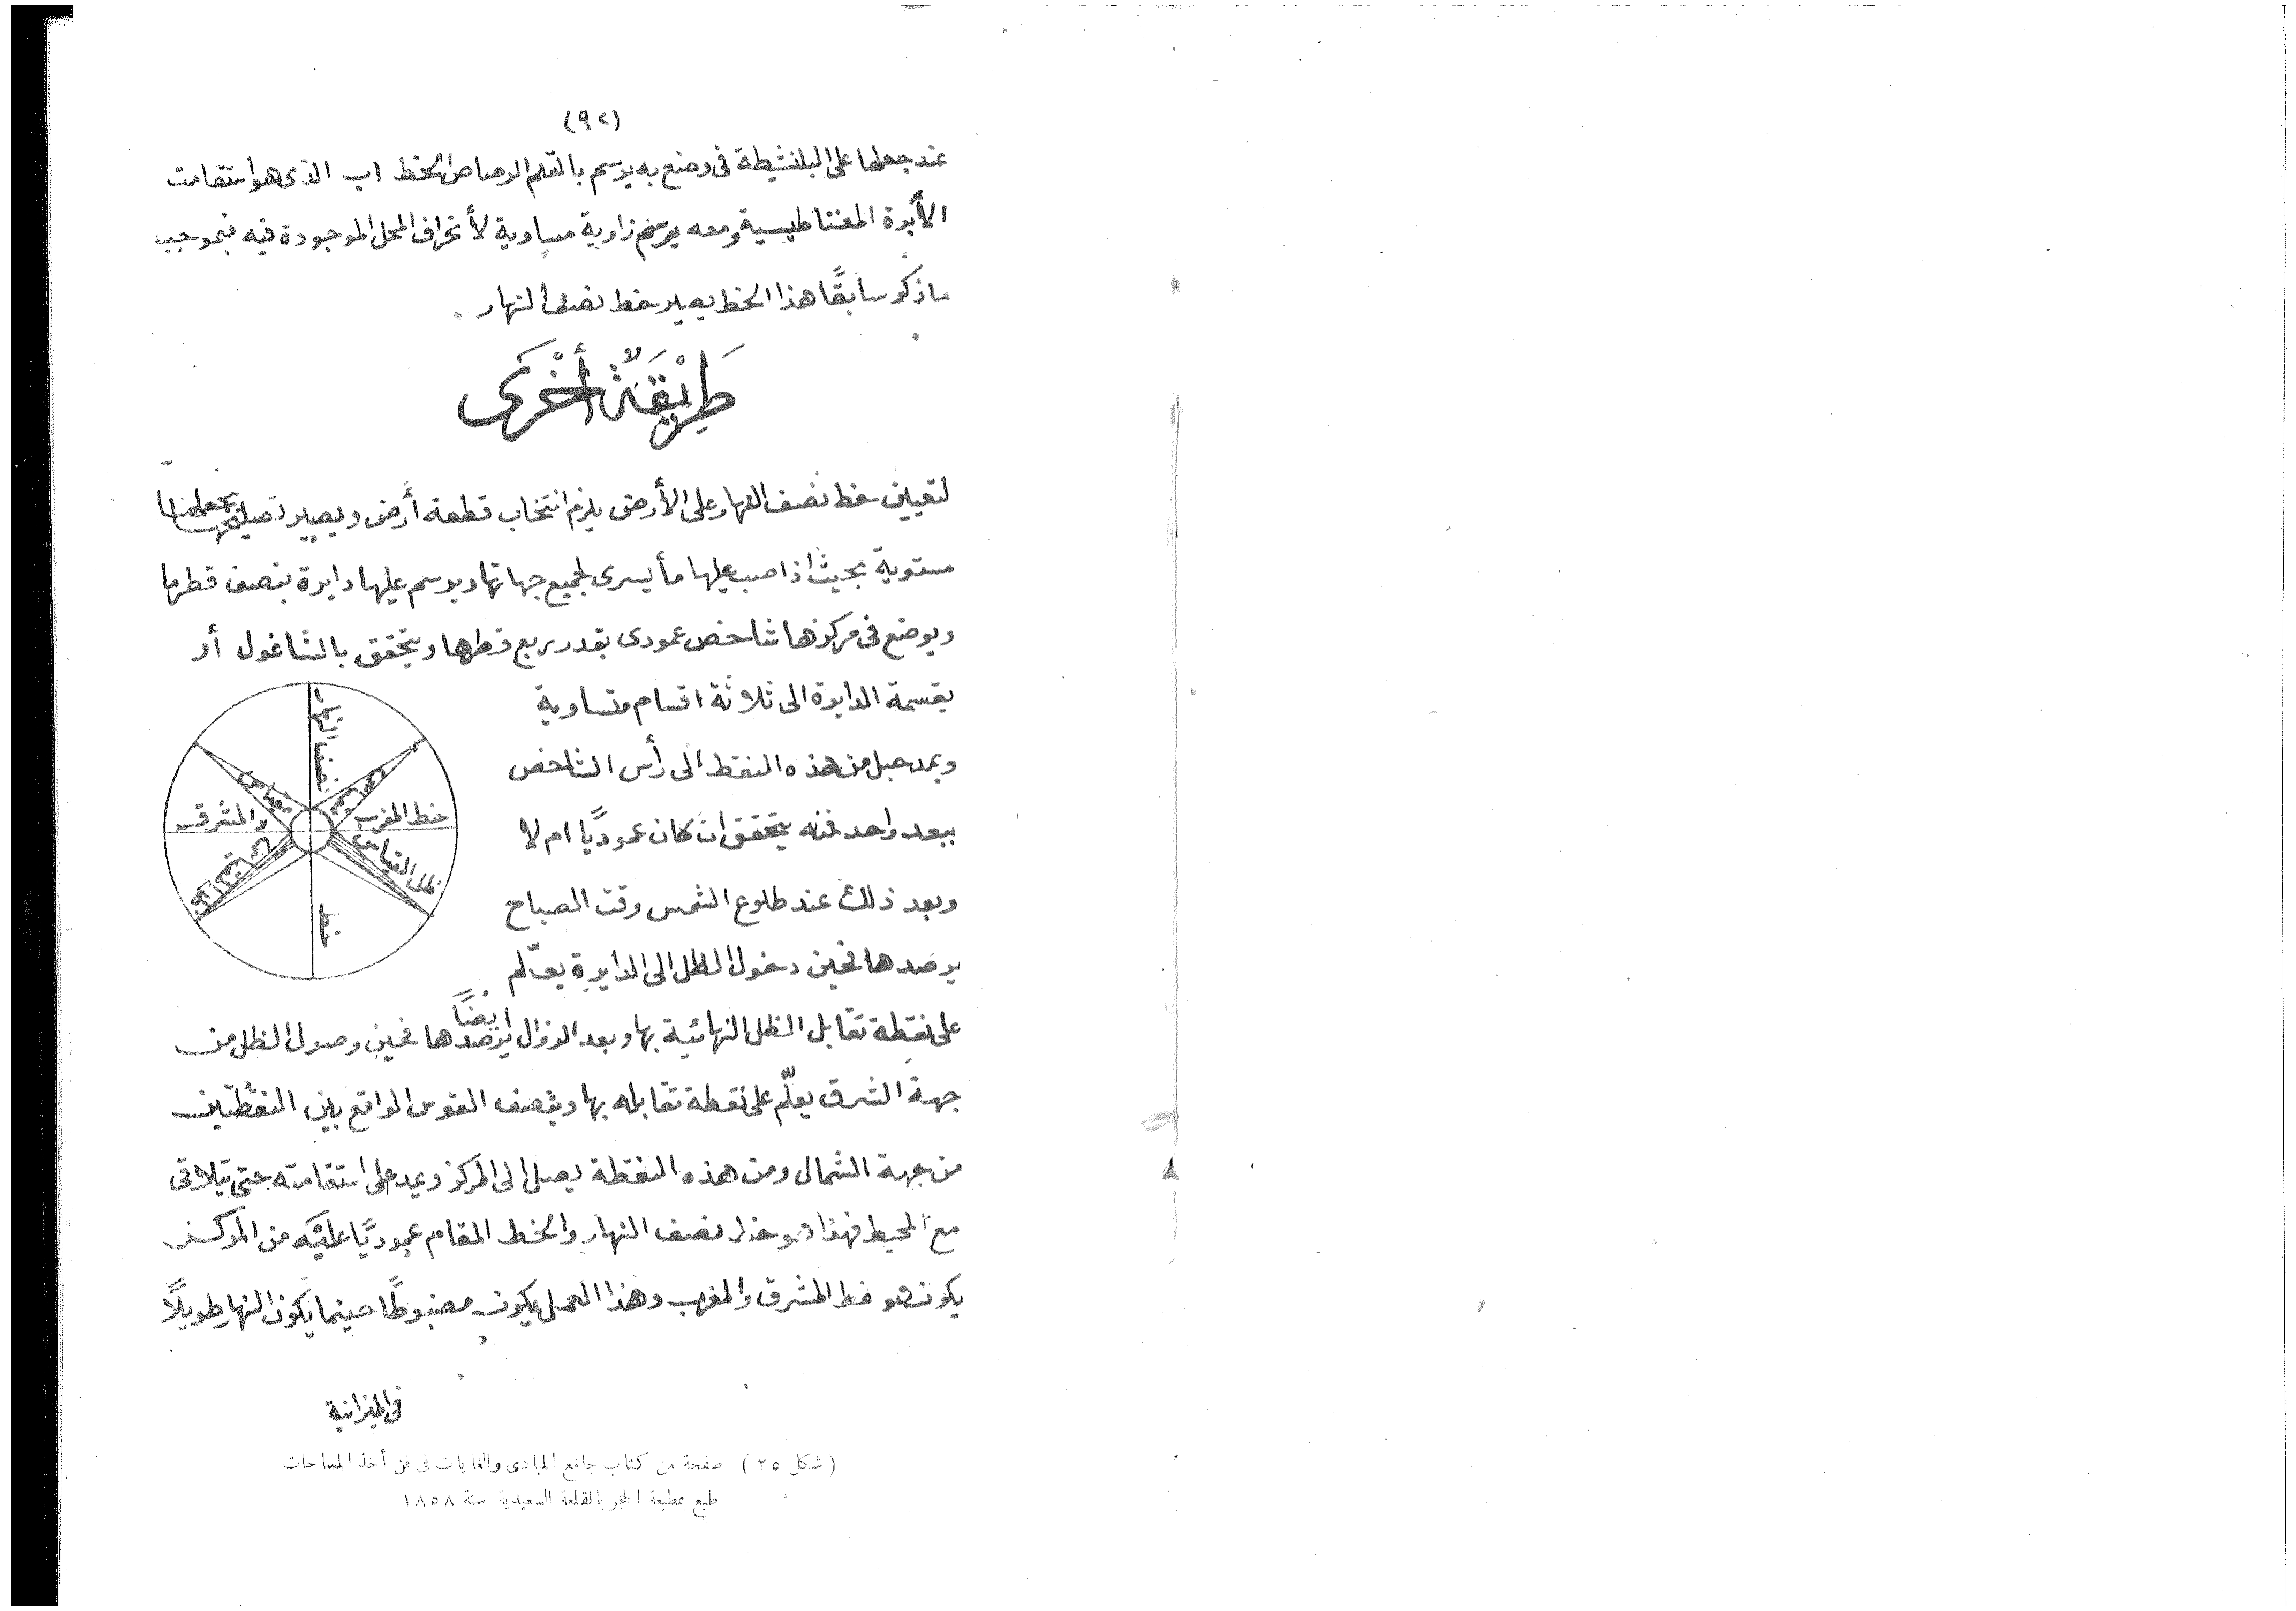 (٩٢)
عند جعلها على البلنشيطة فى وضع به يرسم بالقلم الرصاص الخط اب الذى هو استقامت
الأبرة المغناطيسية ومعه يرسم زاوية مساوية لأنحراف المحل الموجودة فيه فبموجب
ماذكر سابقًا هذا الخط يصير خط نصف النهار
طَرِيْقَةٌ أُخْرَى
لتعيين خط نصف النهار على الأرض يلزم انتخاب قطعة أرض ويصير تصليحها بجعلها
مستوية بحيث اذا صب عليها مأ يسرى لجميع جهاتها ويرسم عليها دايرة بنصف قطر ما
ويوضع فى مركزها شاخص عمودى بقدر ربع قطرها ويتحقق بالشاغول أو
بقسمة الدايرة الى ثلاثة اقسام متساوية
ويمد حبل من هذه النقط الى رأس الشاخص
ببعد واحد فنه يتحقق ان كان عموديًا ام لا
وبعد ذلك عند طلوع الشمس وقت الصباح
يرصدها فحين دخول الظل الى الدايرة يعلّم
على نقطة تقابل الظل النهائية بها وبعد الزوال يرصدها ايضًا فحين وصول الظل من
جهة الشرق يعلّم على نقطة تقابله بها وينصف القوس الواقع بين النقطتين
من جهة الشمال ومن هذه النقطة يصل الى المركز ويمد على استقامته حتى يتلاقى
مع المحيط فهذا هو خط نصف النهار والخط المقام عموديًا عليه من المركز
يكون هو خط المشرق والمغرب وهذا العمل يكون مضبوطًا حينما يكون النهار طويلًا
خط
نصف النهار
خط المغرب
والمشرق
ظل القياس
فى الميزانية
(شكل ٢٥) صفحة من كتاب جامع المبادى والغايات فى فن أخذ المساحات
طبع بمطبعة الحجر بالقلعة السعيدية سنة ١٨٥٨